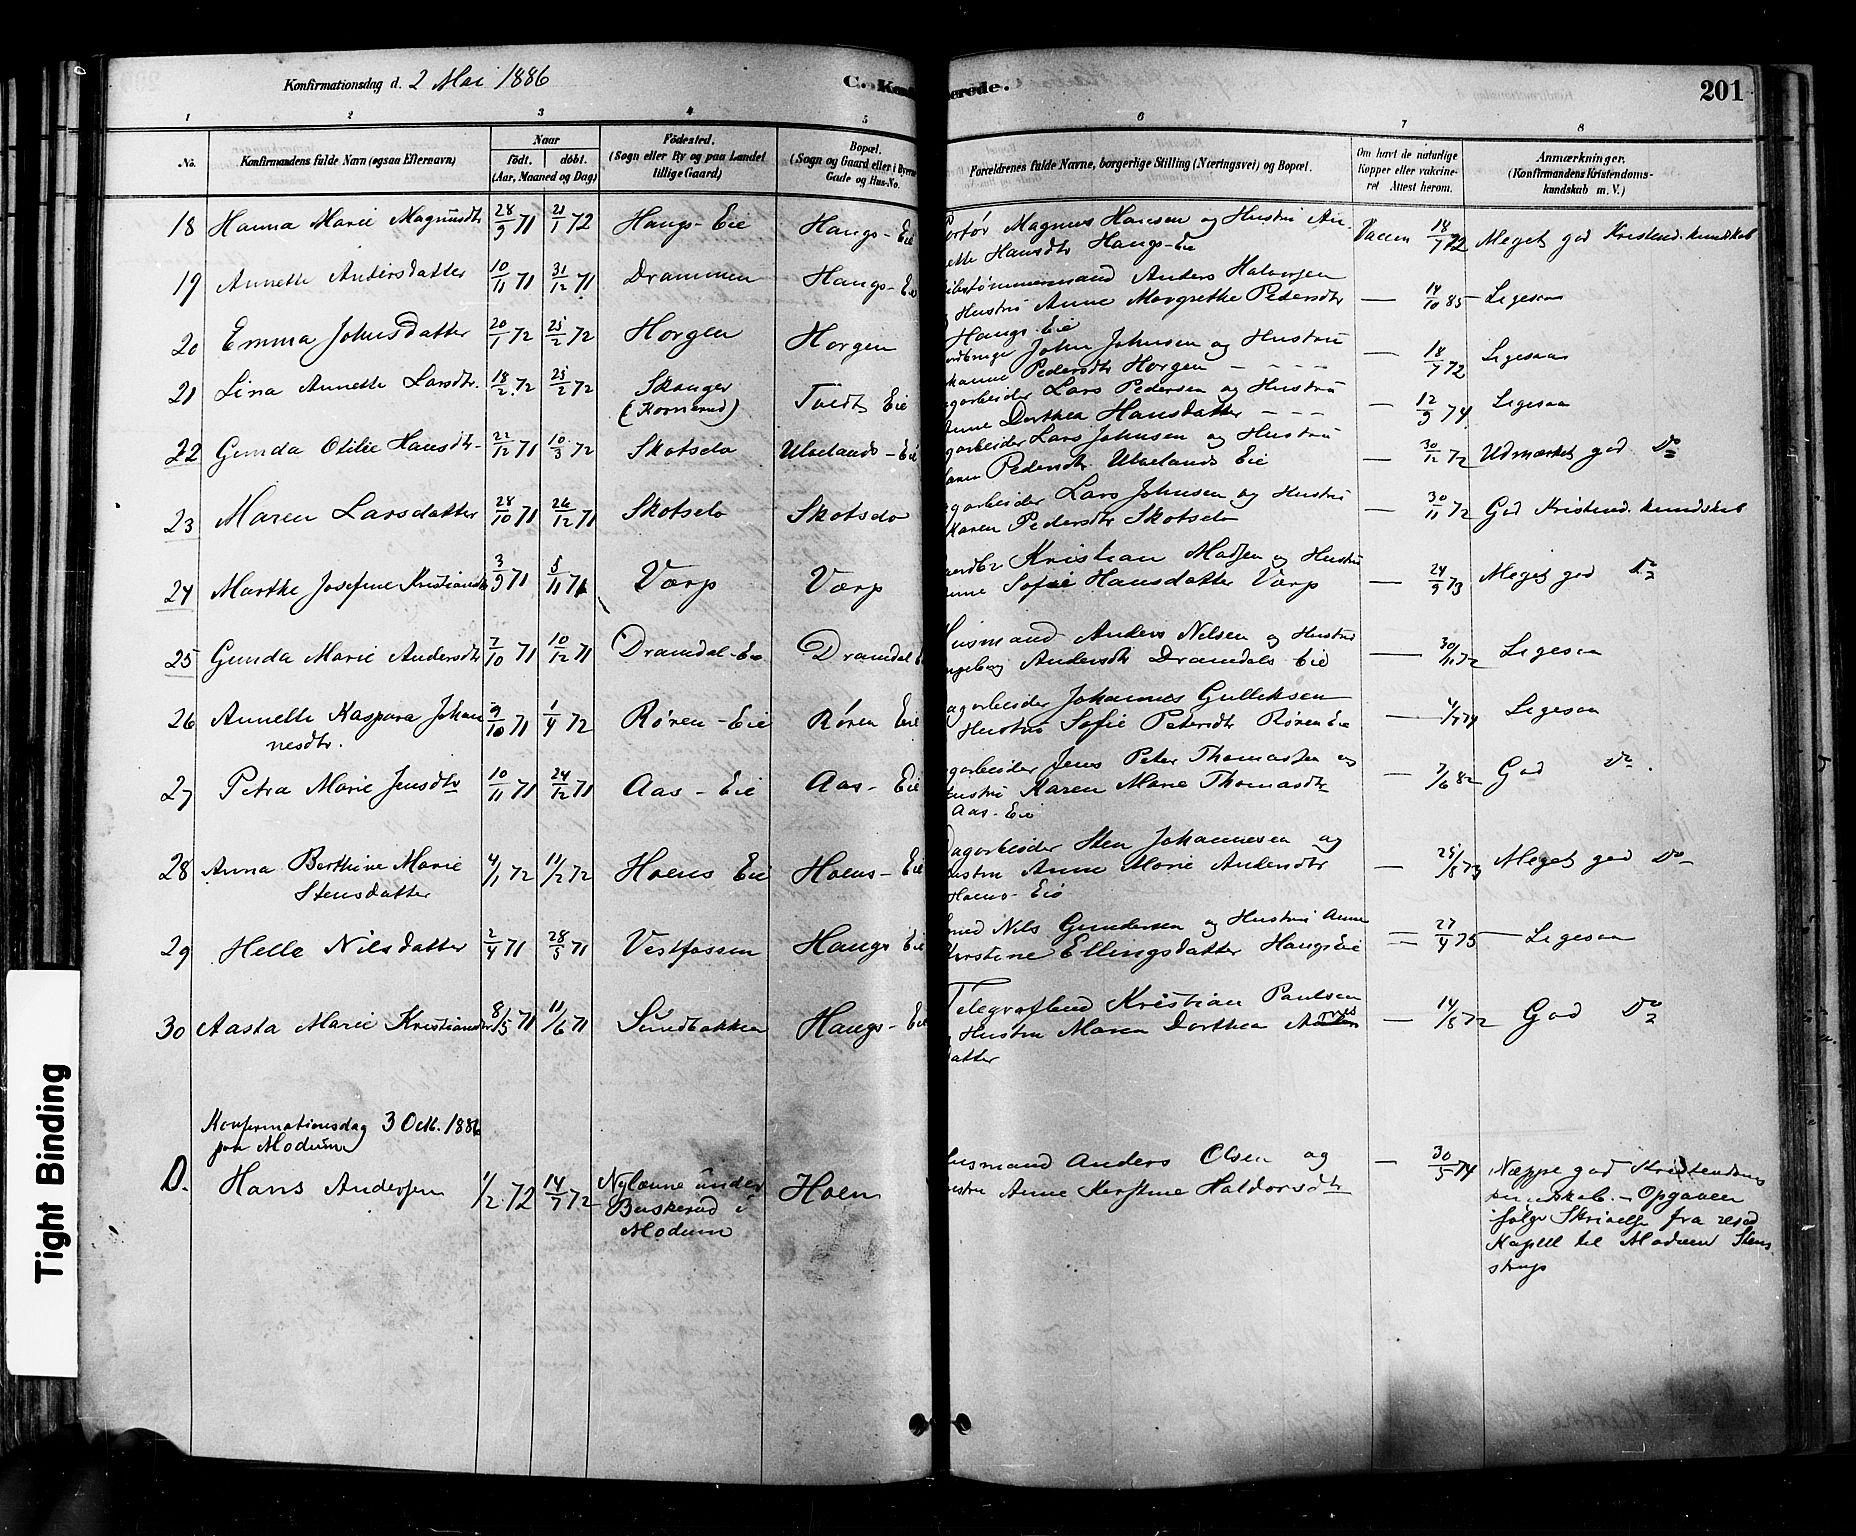 Konfirmationsdag d. 2 Mai 1886
C. Konf
erede.
201
1 2 3 4 5 6 7 8
No.
Konfirmandens fulde Navn (ogsaa Efternavn)
Naar
födt. döbt.
(Aar, Maaned og Dag)
Födested.
(Sogn eller By og paa Landet
tillige Gaard)
Bopæl.
(Sogn og Gaard eller i Byerne
Gade og Hus-No.
Forældrenes fulde Navne, borgerlige Stilling (Næringsvei) og Bopæl.
Om havt de naturlige
Kopper eller vakcine-
ret Attest herom.
Anmærkninger.
(Konfirmandens Kristendoms-
kundskab m. V.)
18 Hanna Marie Magnusdtr 28/9 71 21/1 72 Haugs-Eie Haugs-Eie Magnus Hansen og Hustru An-
ette Hansdtr Haugs-Eie Vaccin 18/7 72 Meget god Kristend. kundskab
19 Annette Andersdatter 10/11 71 31/12 71 Drammen Haugs-Eie Anders Halvorsen
Hustru Anne Margrethe Pedersdtr
Haugs-Eie — 14/10 85 Ligesaa
20 Emma Johnsdatter 20/1 72 25/2 72 Horgen Horgen John Johnsen og Hustru
Pedersdtr Horgen — 18/7 72 Ligesaa
21 Lina Annette Larsdtr. 18/2 72 25/2 72 Skauger
(Kornerud) Tvedts Eie Lars Pedersen og Hustru
Anne Dorthea Hansdatter — 12/9 74 Ligesaa
22 Gunda Otilie Hansdtr 22/12 71 10/3 72 Skotselv Ulvelands-Eie garbeider Lars Johnsen og Hustru
aren Pedersdtr Ulvelands Eie — 30/12 72 Udmærket god Do
23 Maren Larsdatter 28/10 71 26/12 71 Skotselv Skotselv garbeider Lars Johnsen og Hustru
Karen Pedersdtr Skotselv 30/11 72 God Kristend. kundskab
24 Marthe Josefine Kristiansdtr 3/9 71 5/11 71 Værp Værp Kristian Madsen og Hustru
nne Sofie Hansdatter Værp — 24/9 73 Meget god Do
25 Gunda Marie Andersdtr 7/10 71 10/12 71 Dramdal-Eie Dramdal E Husmand Anders Nilsen og Hustru
ngeborg Andersdtr Dramdals Eie — 30/11 72 Ligesaa
26 Annette Kaspara Johan
nesdtr. 9/10 71 1/4 72 Røren-Eie Røren Eie agarbeider Johannes Gulliksen
Hustru Sofie Petersdtr Røren Eie — Ligesaa
27 Petra Marie Jensdtr 10/11 71 24/12 71 Aas-Eie Aas-Eie garbeider Jens Peter Thomassen og
ustru Karen Marie Thomasdtr
Aas-Eie — 7/6 82 God Do.
28 Anna Berthine Marie
Stensdatter 4/1 72 11/2 72 Hoens Eie Hoens-Eie Dagarbeider Sten Johannesen og
ustru Anne Marie Andersdtr
Hoens-Eie — 25/8 73 Meget god Do
29 Helle Nilsdatter 2/4 71 28/5 71 Vestfossen Haugs Eie Smed Nils Gundersen og Hustru Anne
Kirstine Ellingsdatter Haugs Eie — 27/4 75 Ligesaa
30 Aasta Marie Kristiansdtr 8/5 71 11/6 71 Sundbakken Haugs-Eie Telegrafbud Kristian Paulsen
Hustru Maren Dorthea
datter — 14/8 72 God Do
Konfirmationsdag 3 Oct. 1886
paa Modum
D. Hans Andersen 1/2 72 14/7 72 Nylænne under
Buskerud i
Modum Hoen usmand Anders Olsen og
ustru Anne Kirstine Haldorsdtr — 30/5 74 Næppe god Kristendoms
kundskab. – Opgaven
følge Skrivelse fra resid
Kapell til Modum Stens
strup
Tight Binding